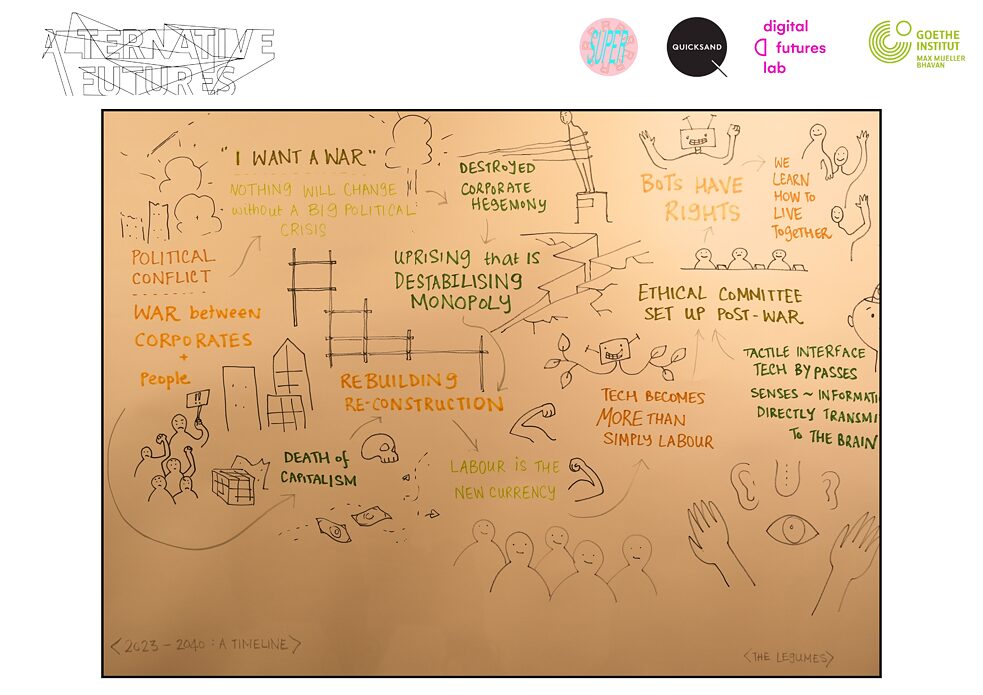 ALTERNATIVE
FUTURES
SUPER
QUICKSAND
digital
futures
lab
GOETHE
INSTITUT
MAX MUELLER
BHAVAN
"I WANT A WAR"
NOTHING WILL CHANGE
without A BIG POLITICAL
CRISIS
DESTROYED
CORPORATE
HEGEMONY
BOTS HAVE
RIGHTS
WE
LEARN
HOW TO
LIVE
TOGETHER
POLITICAL
CONFLICT
WAR between
CORPORATES
+
People
!!
UPRISING that IS
DESTABILISING
MONOPOLY
ETHICAL COMMITTEE
SET UP POST-WAR
TACTILE INTERFACE
TECH BYPASSES
SENSES ~ INFORMATI
DIRECTLY TRANSMI
TO THE BRAIN
REBUILDING
RE-CONSTRUCTION
TECH BECOMES
MORE THAN
SIMPLY LABOUR
DEATH of
CAPITALISM
LABOUR is THE
NEW CURRENCY
<2023 - 2040 : A TIMELINE>
<THE LEGUMES>